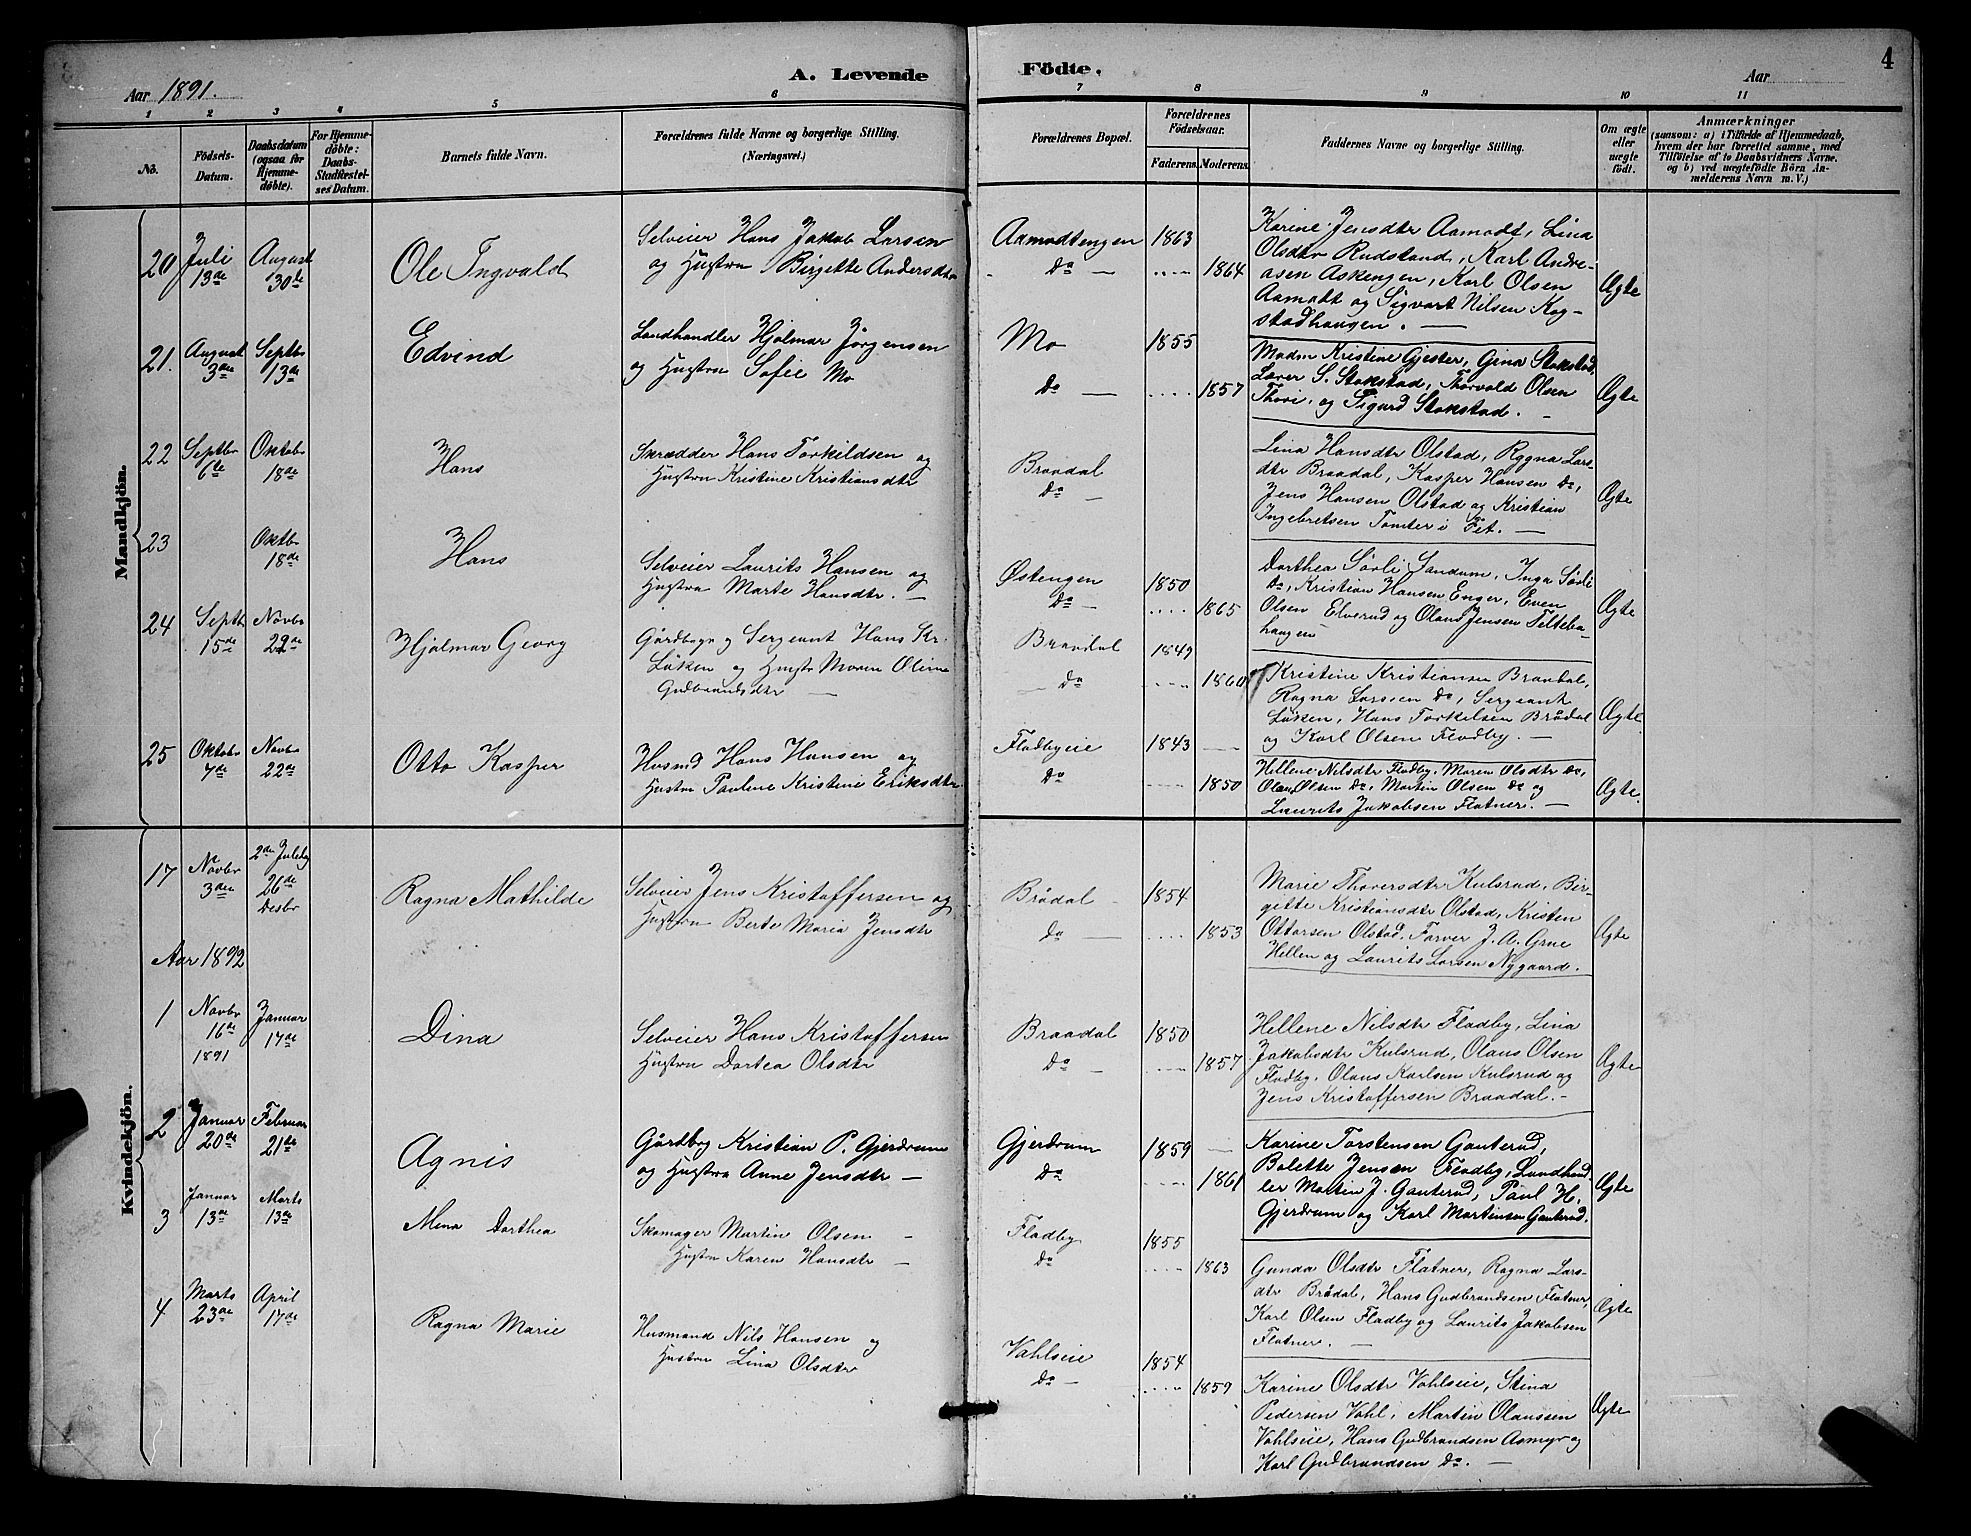 Aar 1891.
A. Levende
Födte.
Aar
4
1 2 3 4 5 6 7 8 9 10 11
No.
Födsels-
Datum.
Daabsdatum
(ogsaa for
Hjemme-
döbte).
For Hjemme-
döbte:
Daabs-
Stadfæstel-
ses Datum.
Barnets fulde Navn.
Forældrenes fulde Navne og borgerlige Stilling.
(Næringsvei.)
Forældrenes Bopæl.
Forældrenes
Födselsaar.
Faderens. Moderens.
Faddernes Navne og borgerlige Stilling.
Om ægte
eller
uægte
födt.
Anmærkninger
(saasom: a) i Tilfælde af Hjemmedaab,
hvem der har forrettet samme, med
Tilföielse af to Daabsvidners Navne.
og b) ved uægtefödte Börn An-
melderens Navn m. V.)
Mandkjön.
20 Juli
13de
August
30te
Ole Ingvald
Selveier Hans Jakob Larsen
og Hustru Birgette Andersdtr
Aamodtengen 1863
Do — 1864
Karine Jensdtr Aamodt, Lina
Olsdtr Rudstand, Karl Andre-
asen Askengen, Karl Olsen
Aamodt og Sigvart Nilsen Kog-
stadhaugen. —
Ægte
21. August
3die
Septbr
13de
Edvind
Landhandler Hjalmar Jörgensen
og Hustru Sofie Mo
Mo 1855
Do — 1857
Madm Kristine Gjester, Gina Stokstad,
Lærer S. Stokstad, Thorvald Olsen
Thori, og Sigurd Stokstad. —
Ægte
22 Septbr
6te
Oktobr
18de
Hans
Skrædder Hans Torkildsen og
Hustru Kristine Kristiansdtr
Braadal
Do —
Lina Hansdtr Olstad, Ragna Lars-
dtr Braadal, Kasper Hansen Do,
Jens Hansen Olstad og Kristian
Ingebretsen Tomter i Fet. —
Ægte
23
Oktbr
18de
Hans
Selveier Laurits Hansen og
Hustru Marte Hansdtr. —
Østengen 1850
Do — 1865
Dorthea Sörli Sandum, Inga Sörli
Do, Kristian Hansen Enger, Even
Olsen Elverud og Olaus Jensen Telteba-
haugen
Ægte
24 Septbr
15de
Novbr
22de
Hjalmar Georg
Gårdbrgr og Sergeant Hans Kr.
Löken og Hustr Maren Oline
Gudbrandsdtr —
Braadal 1849
— Do 1860
Kristine Kristiansen Braadal,
Ragna Larsen Do, Sergeant
Löken, Hans Torkilsen Brådal
og Karl Olsen Fladby. —
Ægte
25 Oktobr
7de
Novbr
22de
Otto Kasper
Husmd Hans Hansen og
Hustru Pauline Kristine Eriksdtr
Fladbyeie 1843 —
Do 1850
Hellene Nilsdtr Fladby, Maren Olsdtr Do,
Olaus Olsen Do, Martin Olsen Do og
Laurits Jakobsen Flatner. —
Ægte.
Kvindekjön.
17 Novbr
3die
2den Juledag
26de
Desbr
Ragna Mathilde
Selveier Jens Kristoffersen og
Hustru Berte Maria Jensdtr
Brådal 1854
Do — 1853
Marie Thoversdtr Kulsrud, Bir-
gette Kristiansdtr Olstad, Kristen
Ottersen Olstad, Farver J. A. Grue
Hellen og Laurits Larsen Nygaard.
Ægte
Aar 1892
1 Novbr
16de
1891
Januar
17de
Dina
Selveier Hans Kristoffersen
Hustru Dortea Olsdtr
Braadal 1850
Do — 1857
Hellene Nilsdtr Fladby, Lina
Jakobsdtr Kulsrud, Olaus Olsen
Fladby, Olaus Karlsen Kulsrud og
Jens Kristoffersen Braadal. -
Ægte
2 Januar
20de
Februar
21de
Agnis
Gårdbrg Kristian P. Gjerdrum
og Hustru Anne Jensdtr —
Gjerdrum 1859 —
Do 1861
Karine Torstensen Gauterud,
Bolette Jensen Fladby, Landhand-
ler Martin J. Gauterud, Paul H.
Gjerdrum og Karl Martinsen Gauterud.
Ægte
3
Januar
13de
Marts
13de
Mina Dorthea
Skomager Martin Olsen —
Hustru Karen Hansdtr —
Fladby 1855
Do 1863
Gunda Olsdtr Flatner, Ragna Lars-
dtr Brådal, Hans Gudbrandsen Flatner,
Karl Olsen Fladby og Laurits Jakobsen
Flatner. —
Ægte
4 Marts
23de
April
17de
Ragna Marie
Husmand Nils Hansen og
Hustru Lina Olsdtr
Vahlseie 1854
Do — 1859
Karine Olsdtr Vahlseie, Stina
Pedersen Vahl, Martin Olaussen
Vahlseie, Hans Gudbrandsen Aamyr og
Karl Gudbrandsen Do. —
Ægte